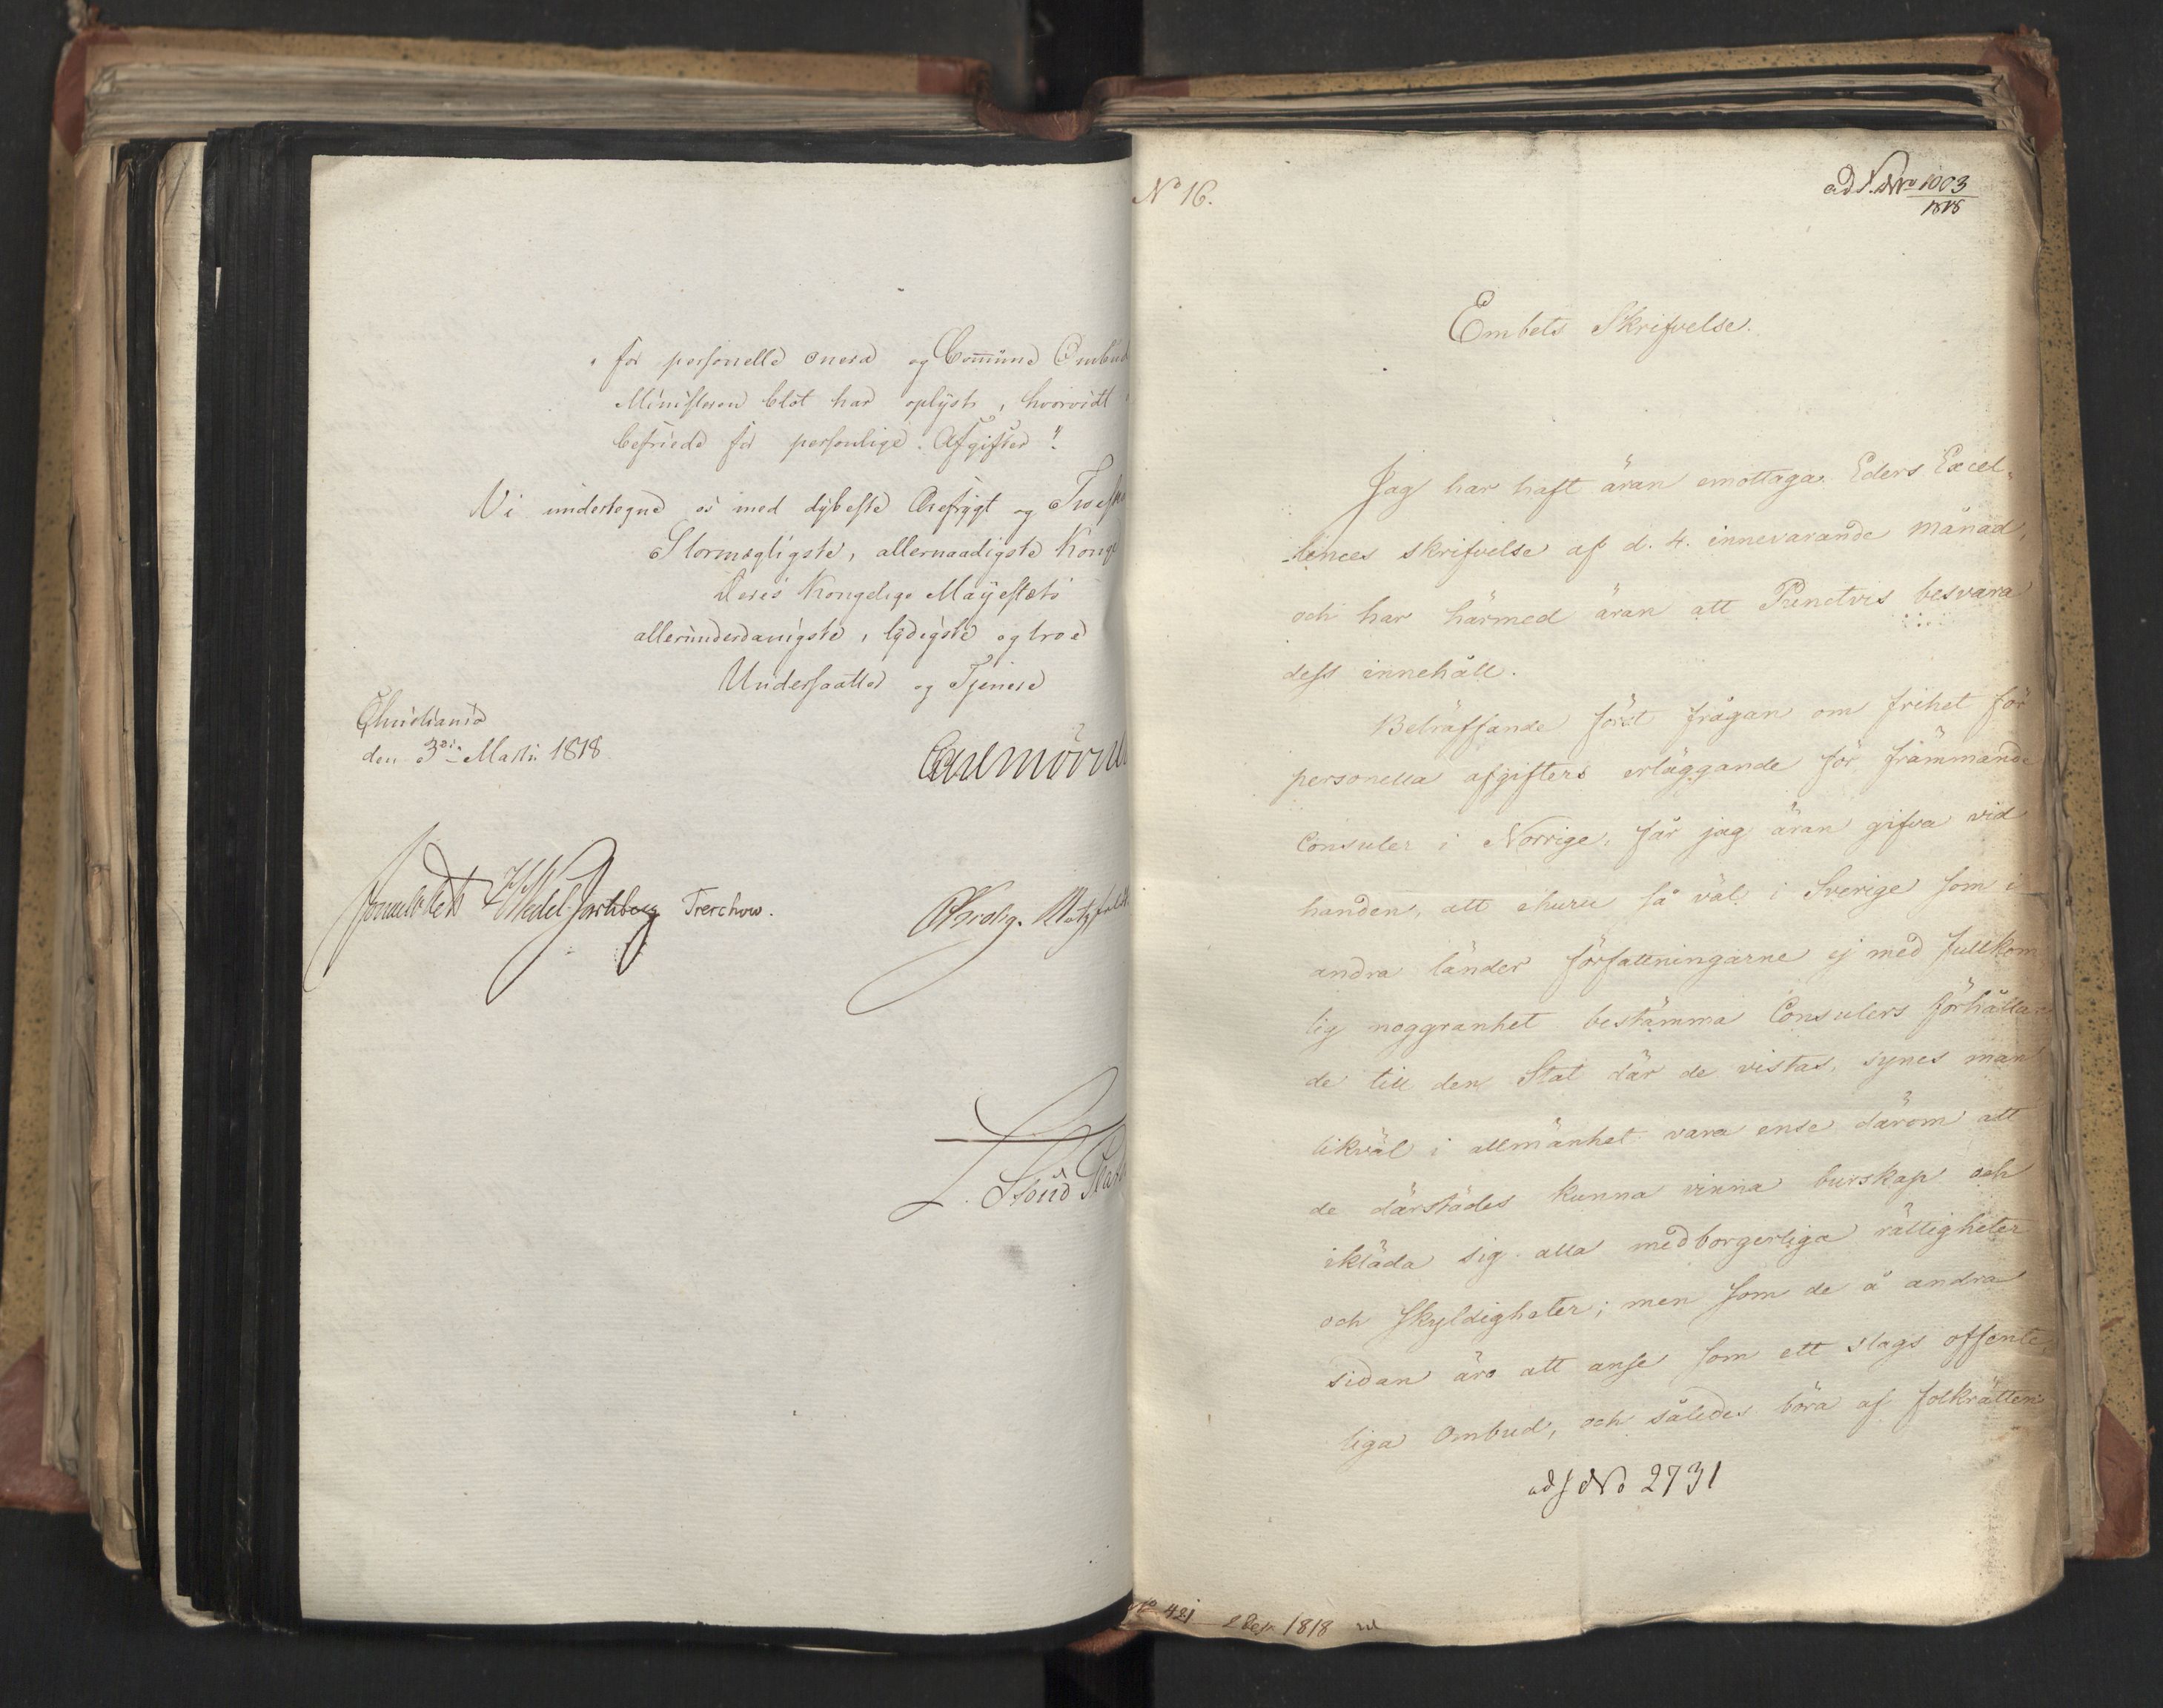 "for personelle onera og Commune Embed
Ministeren blot har oplyst, hvorvidt
befriede for personlige Afgifter".
Vi undertegne os med dybeste Ærefrygt og
Stormægtigste, allernaadigste Konge
Deres Kongelige Mayestæts
allerunderdanigste, lydigste og troe
Undersaatter og Tjenere
Christiania
den 3die Marti 1818
Carl Mörner
Sommerhielm Wedel-Jarlsberg Treschow.
Krohg.
N° 16.
ad J. Nro 1003
1818
Embets Skrifvelse.
Jag har haft äran emottaga Eders Excel-
lences skrifvelse af d. 4. innevarande månad,
och har härmed äran att Punctvis besvara
dess innehåll.
Beträffande först frågan om frihet för
personella afgifters erläggande för främmande
Consuler i Norrige, får jag äran gifva vid
handen, att ehuru så väl i Sverige som i
andra länder författningarne ej med fullkom
lig noggranhet bestämma Consulers förhållan
de till den Stat där de vistas, synes man
likväl i allmänhet vara ense därom att
de därstädes kunna vinna burskap och
ikläda sig alla medborgerliga rättigheter
och skyldigheter; men som de å andra
sidan äro att anse som ett slags offente
liga Ombud, och således böra af folkrätten
ad J No 2731
No 421 1818